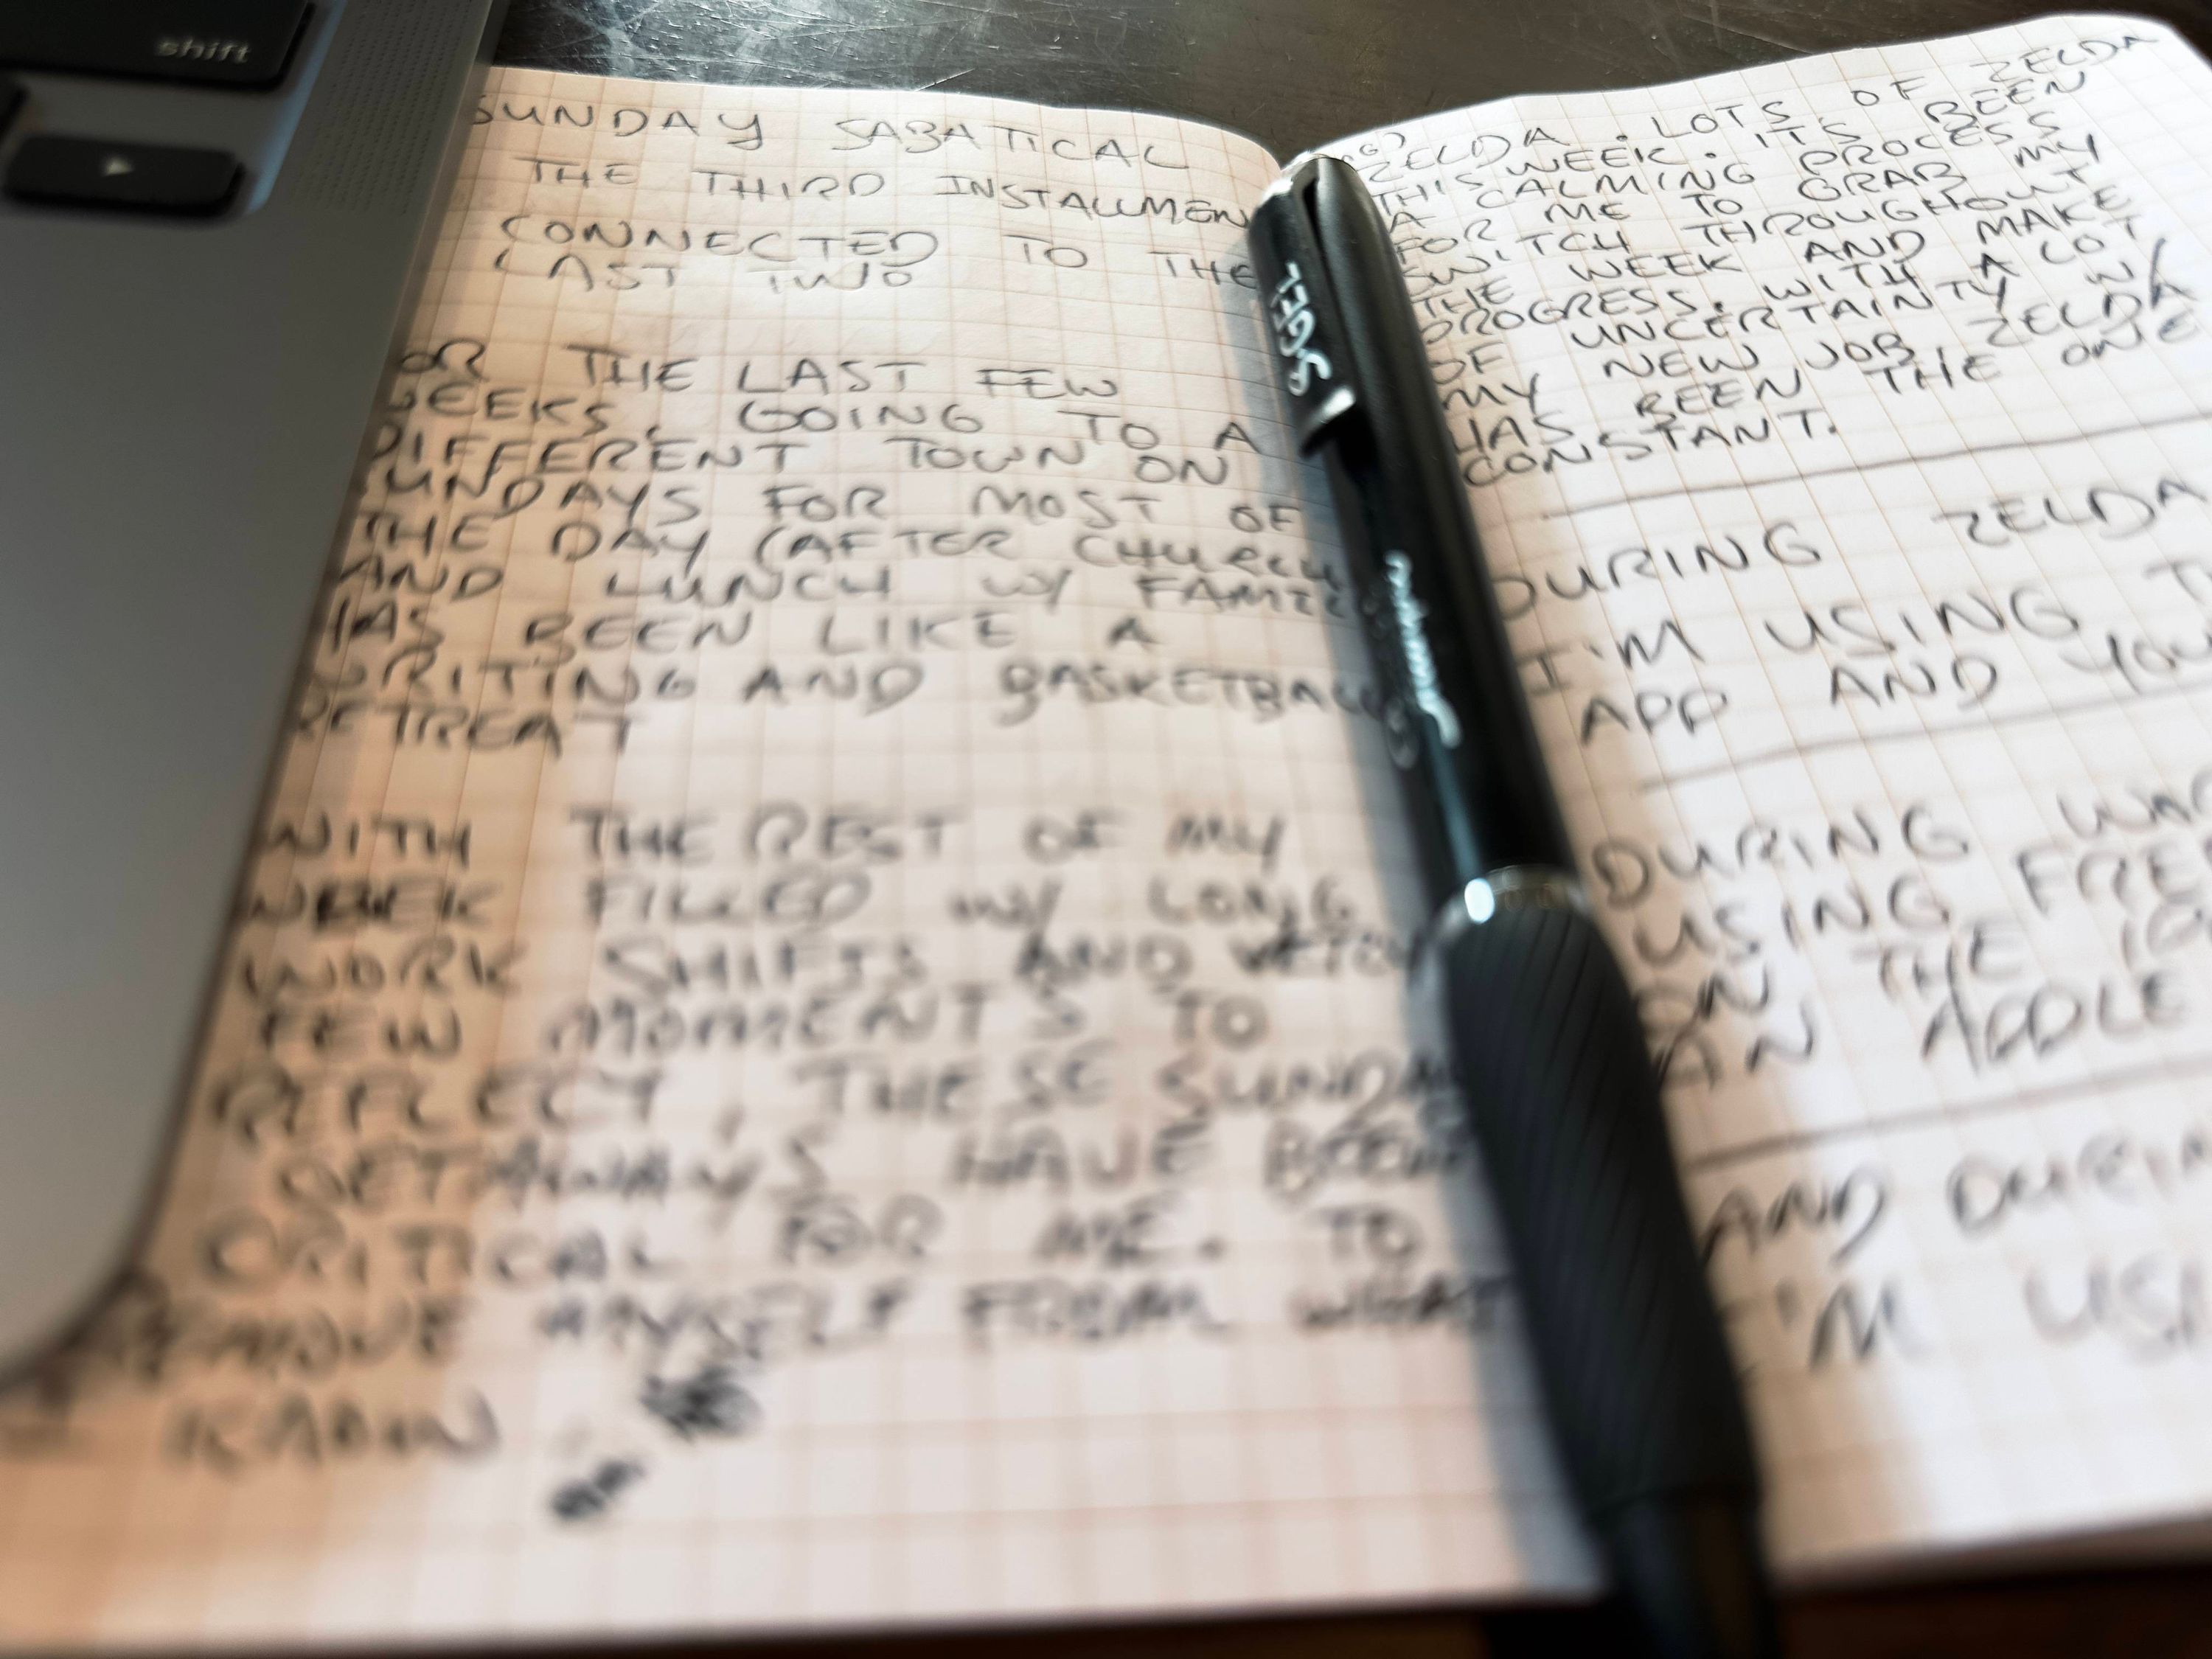 shift
SUNDAY SABATICAL
THE THIRD INSTALLMEN
CONNECTED TO THE
LAST TWO
OR THE LAST FEW
WEEKS, GOING TO A
DIFFERENT TOWN ON
SUNDAYS FOR MOST OF
THE DAY (AFTER CHURCH
AND LUNCH W/ FAMIL
HAS BEEN LIKE A
WRITING AND BASKETBALL
RETREAT
WITH THE REST OF MY
WEEK FILLED W/ LONG
WORK SHIFTS AND
FEW MOMENTS TO
REFLECT, THESE SUNDA
GETAWAYS HAVE BEEN
CRITICAL FOR ME. TO
REMOVE MYSELF FROM WHAT
I KNOW
S·GEL
ZELDA. LOTS OF ZELDA
THIS WEEK. IT'S BEEN
A CALMING PROCESS
FOR ME TO GRAB MY
SWITCH THROUGHOUT
THE WEEK AND MAKE
PROGRESS. WITH A LOT
OF UNCERTAINTY W/
MY NEW JOB ZELDA
HAS BEEN THE ONE
CONSTANT.
DURING ZELDA
I'M USING
APP AND YOU
DURING
USING FRE
ON THE
AN APPLE
AND DURIN
I'M USI